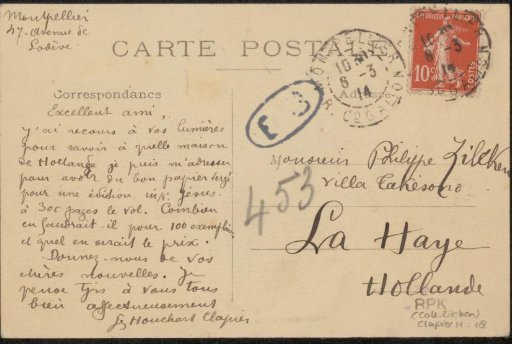 Montpellier
47, avenue de
Lodève
CARTE POSTALE
Correspondance
Adresse
Excellent ami,
J'ai recours à vos lumières
pour savoir à quelle maison
de Hollande je puis m'adresser
pour avoir du bon papier vergé
pour une édition in/8° Jésus.
à 300 pages le vol. Combien
en faudrait-il pour 100 exempl
et quel en serait le prix.
Donnez-nous de vos
chères nouvelles. Je
pense tjrs à vous tous
bien affectueusement
Houchart Clapiès
Monsieur Philippe Zilcken
Villa
La Haye
Hollande
E 3
453
REPUBLIQUE FRANÇAISE
10c
POSTES
MONTPELLIER
10
6 - 3
14
RPK
(Coll. Zilcken)
Clapier H. 18